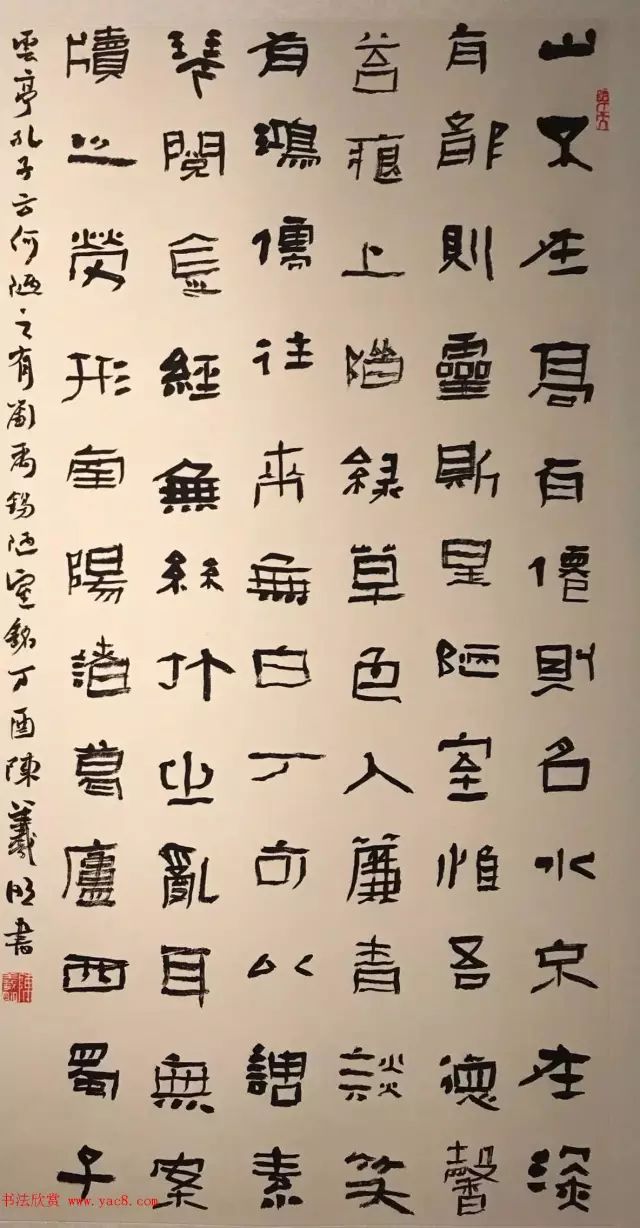 山不在高有僊則名水不在深
有龍則靈斯是陋室惟吾德馨
苔痕上階綠草色入簾青談笑
有鴻儒往來無白丁可以調素
琴閱金經無絲竹之亂耳無案
牘之勞形南陽諸葛廬西蜀子
雲亭孔子云何陋之有劉禹錫陋室銘丁酉陳羲明書
书法欣赏 www.yac8.com